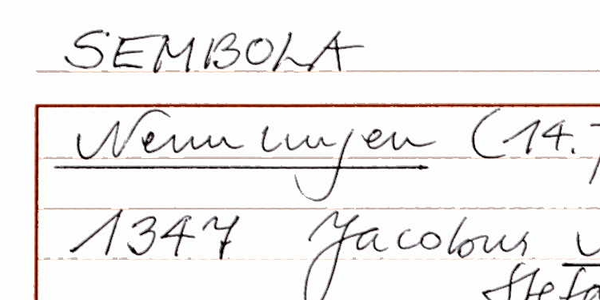 SEMBOLA
Nennungen (14.
1347 Jacobus
Stefa